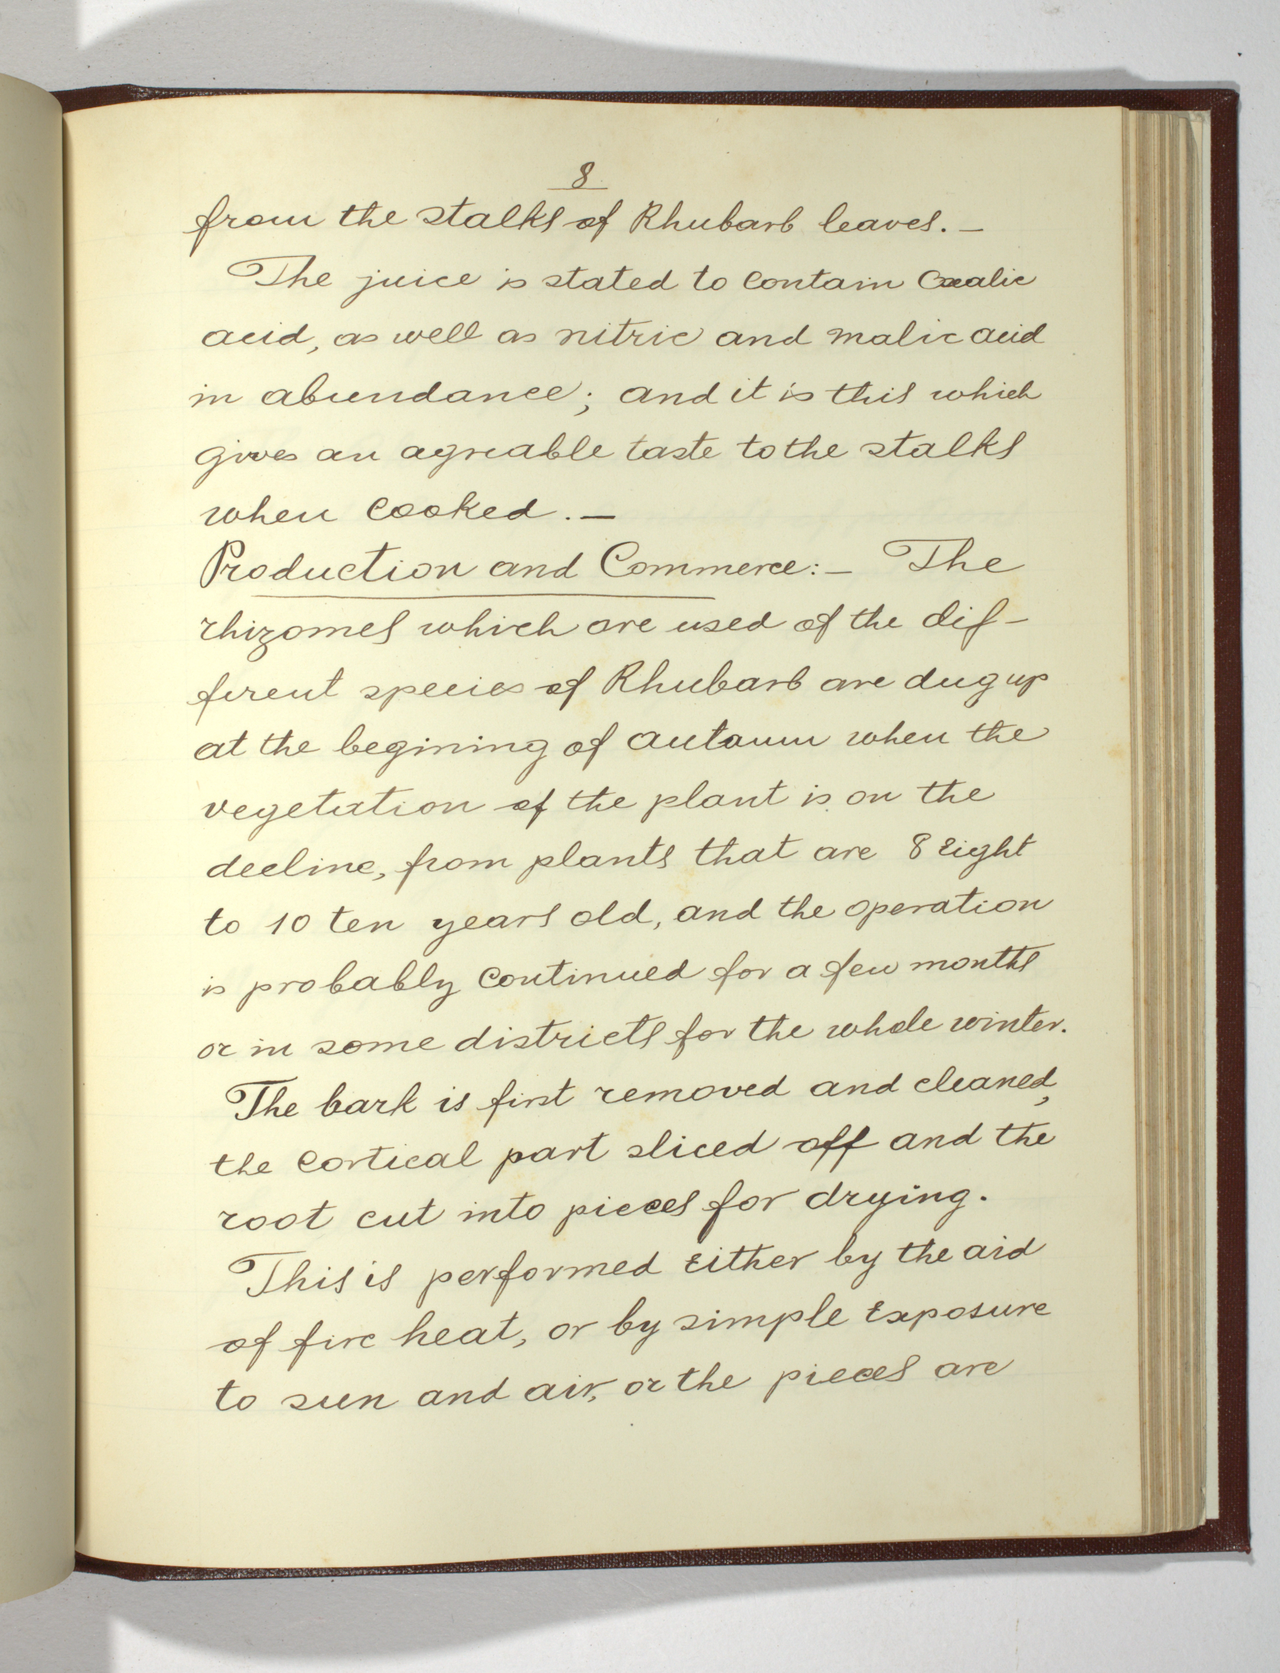 8
from the stalks of Rhubarb leaves. —
The juice is stated to contain Oxalic
acid, as well as nitric and malic acid
in abundance; and it is this which
gives an agreable taste to the stalks
when cooked. —
Production and Commerce: — The
rhizomes which are used of the dif-
ferent species of Rhubarb are dug up
at the begining of autumn when the
vegetation of the plant is on the
decline, from plants that are 8 eight
to 10 ten years old, and the operation
is probably continued for a few months
or in some districts for the whole winter.
The bark is first removed and cleaned,
the cortical part sliced off and the
root cut into pieces for drying.
This is performed either by the aid
of fire heat, or by simple exposure
to sun and air, or the pieces are